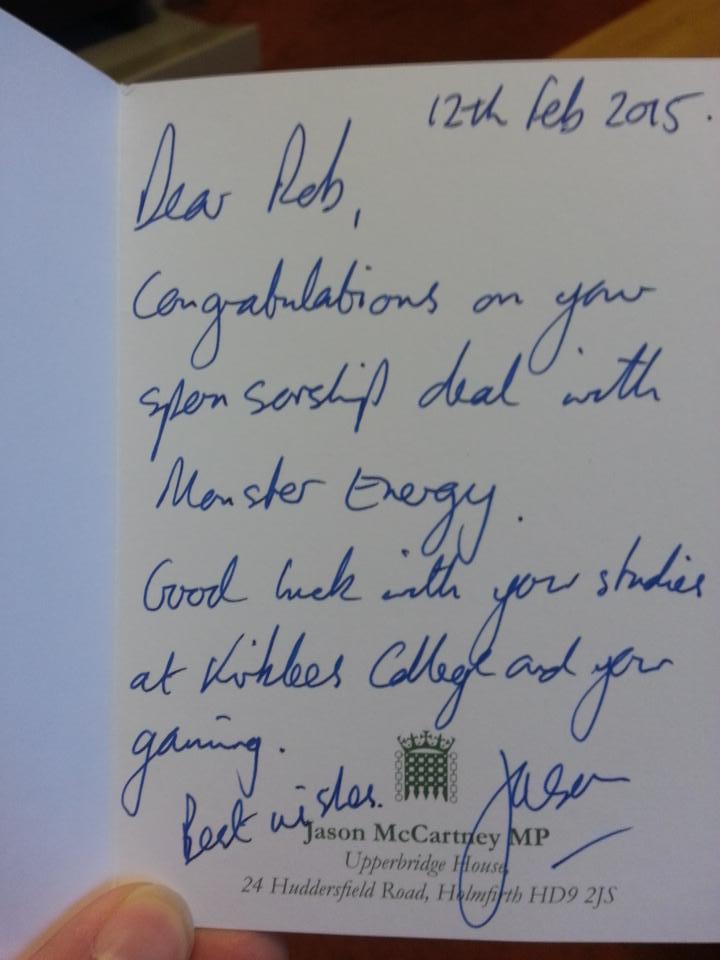 12th Feb 2015.
Dear Rob,
Congratulations on your
sponsorship deal with
Monster Energy.
Good luck with your studies
at Kirklees College and your
gaming.
Best wishes. Jason
Jason McCartney MP
Upperbridge House,
24 Huddersfield Road, Holmfirth HD9 2JS